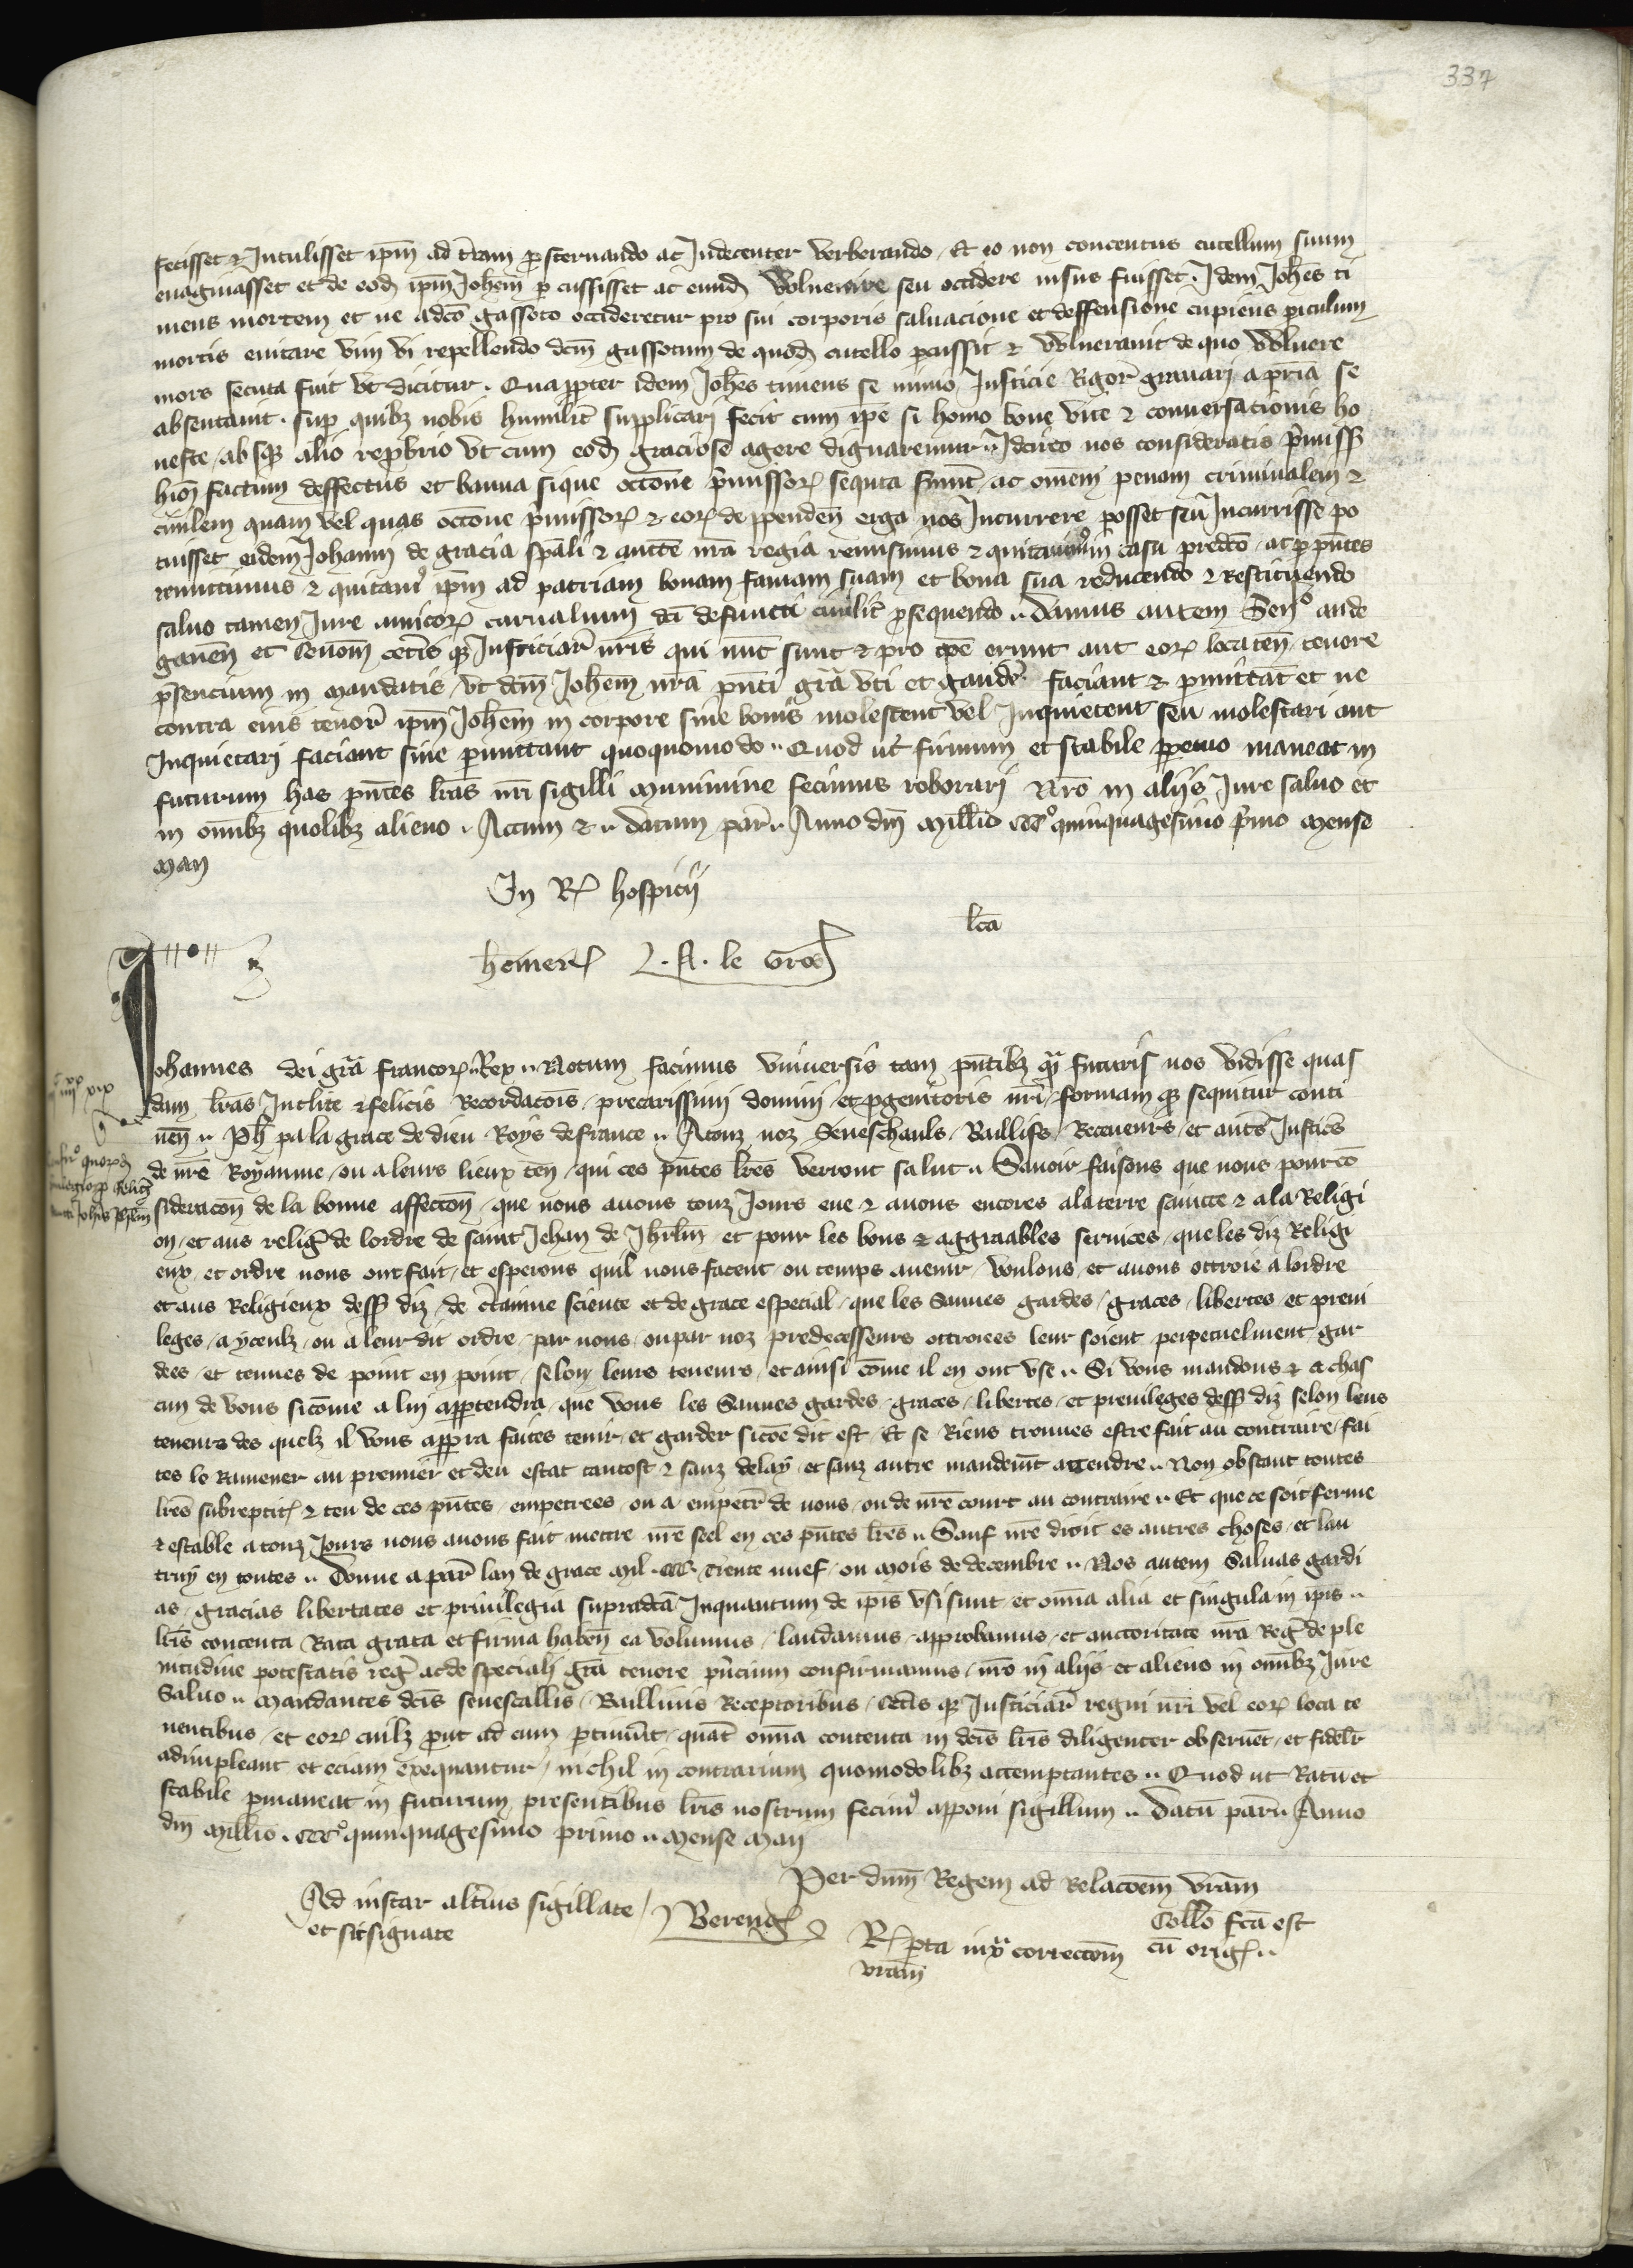 337
fecisset & Intulisset ip̄m ad t̄ram p̱sternando ac Indecenter verberando / Et eo non contentus cutellum suum
euaginasset et de eod̄ ip̄m Joh̄em p̱cussisset ac eund̄ Wlnerare seu occidere nisus fuisset / Idem Joh̄es ti
mens mortem et ne a dc̄o gassoto occideretur pro sui corporis saluacione et deffensione cupiens p̱iculum
mortis euitare vim vi repellendo dc̄m gassotum de quod̄ cutello p̱cussit & Wlnerauit de quo Wlnere
mors secuta fuit vt dicitur . Quapp̱ter idem Joh̄es timens se nimio Justicie Rigor̄ grauari a p̄ria se
absentauit . sup̱ quibz nobis humilit̄ supplicari fecit cum ip̄e sit homo bone vite & conuersacionis ho
neste / absqz alio rep̱brio vt cum eod̄ graciose agere dignaremur .. Idcirco nos consideratis p̄miss̄
h̄iōi factum deffectus et banna sique occōne p̄missoꝝ sequta fūnt / ac om̄em penam criminalem &
ciuilem quam vel quas occōne p̄missoꝝ & eoꝝ deppenden̄ erga nos Incurrere posset seu Incurrisse po
tuisset eidem Johanni de gracia sp̄ali & auct̄te nr̄a regia remisimus & quitauimꝰ in casu predc̄o / ac p̱ pn̄tes
remittimus & quitamꝰ ip̄m ad patriam bonam famam suam et bona sua reducendo & Restituendo
saluo tamen Jure amicoꝝ carnalium dc̄i defuncti ciuilit̄ p̱sequendo .. Damus autem Sen̄o ande
gauen̄ et cenom̄ cet̄is qz Justiciar̄ nr̄is qui nūc sunt & pro tp̄e erunt aut eoꝝ locaten̄ / tenore
p̄sencium in mandatis / vt dc̄m Joh̄em nr̄a pn̄ti gr̄a vti et gauder̄ faciant & p̱mittāt et ne
contra eius tenor̄ ip̄m Joh̄em in corpore siue bonis molestent vel Inquietent seu molestari aut
Inquietari faciant siue p̱mittant quoquomodo .. Quod ut firmum et stabile pp̱etuo maneat in
futurum has pn̄tes lr̄as nr̄i sigilli munimine fecimus roborari Nr̄o in aliis Jure saluo et
in om̄ibz quolibz alieno .. Actum & .. datum par̄ .. Anno dn̄i Mill̄io cccꝰ quinquagesimo p̄mo mense
Maii
In Rꝭ hospicii
lc̄a
hemerꝭ L. A. le Gros
Johannes dei gr̄a francoꝝ Rex .. Notum facimus Vniuersis tam pn̄tibz qᵃ futuris nos vidisse quas
dam lr̄as Inclite & felicis Recordacōis / precarissimi domini / et p̱genitoris nr̄i / formam qz sequitur conti
nen̄ .. Ph̄ pa la grace de dieu Roys de france .. A touz noz Seneschauls / Baillifs / Receueurs / et aut̄s Justic̄s
de nr̄e Royaume / ou a leurs lieux ten̄ / qui ces pn̄tes lr̄es verront salut .. Sauoir faisons que nous pour cō
sideracōn de la bonne affecc̄on / que nous auons touz Jours eue & auons encores a la terre saincte & a la Religi
on / et aus reliḡ de lordre de saint Jehan de Jhr̄lm̄ / et pour les bons & aggreables seruices / que les diz Religi
eux / et ordre nous ont fait / et esperons quil nous facent / ou temps auenir / voulons / et auons ottroie a lordre
et aus Religieux dess̄ diz / de c̄taine science et de grace especial / que les Sauues gardes / graces / libertes / et preui
leges / a yceulz / ou a leur dit ordre / par nous / ou par noz predecesseurs ottroiees leur soient / perpetuelment / gar
dees / et tenues de point en point / selon leurs teneurs / et ainsi cōme il en ont vse .. Si vous mandons & a chas
cun de vous sicōme a lui app̱tendra / que vous les Sauues gardes / graces / libertes / et preuileges dess̄ diz selon leus
teneurs des quelz il vous app̱ra faites tenir / et garder sicōe dit est / Et se Riens trouues estre fait au contraire / fai
tes le Ramener au premier et deu estat tantost & sanz delay / et sanz autre mandem̄t attendre .. Non obstant toutes
lr̄es subrepticꝭ & teu de ces pn̄tes / empetrees / ou a empetr̄ de nous / ou de nr̄e court au contraire .. Et que ce soit ferme
& estable a touz Jours nous auons fait mettre nr̄e seel en ces pn̄tes lr̄es .. Sauf nr̄e droit es autres choses / et lau
truy en toutes .. Donne a par̄ lan de grace Mil . ccc . trente nuef / ou mois de decembre .. Nos autem Saluas gardi
as / gracias libertates et priuilegia supradc̄a Inquantum de ip̄is vsi sunt et om̄ia alia et singula in ip̄is ..
lr̄is contenta Rata grata et firma haben̄ ea volumus / laudamus / approbamus / et auctoritate nr̄a Reḡ de ple
nitudine potestatis reḡ ac de speciali gr̄a tenore pn̄cium confirmamus / nr̄o in aliis et alieno in om̄ibz Jure
Saluo .. Mandantes dc̄is senescallis / Balliuis Receptoribus / cet̄is qz Justiciar̄ regni nr̄i vel eoꝝ loca te
nentibus / et eoꝝ cuilz p̱ut ad eum p̱tinūit / quat̄ om̄ia contenta in dc̄is lr̄is diligenter obseruēt / et fidelr̄
adimpleant et eciam exequantur / nichil in contrarium quomodolibz attemptantes .. Quod ut Ratū et
stabile p̱maneat in futurum presentibus lr̄is nostrum fecimꝰ apponi sigillum .. Datū par̄ .. Anno
dn̄i Mill̄io . cccꝰ quinquagesimo primo .. Mense Maii
Per dn̄m Regem ad Relacōem vr̄am
Ad instar alt̄ius sigillate / Berengꝭ
et sic signate
Coll̄o fc̄a est
cū origꝭ ..
Rꝭpta iuxᵃ correccōm
vr̄am